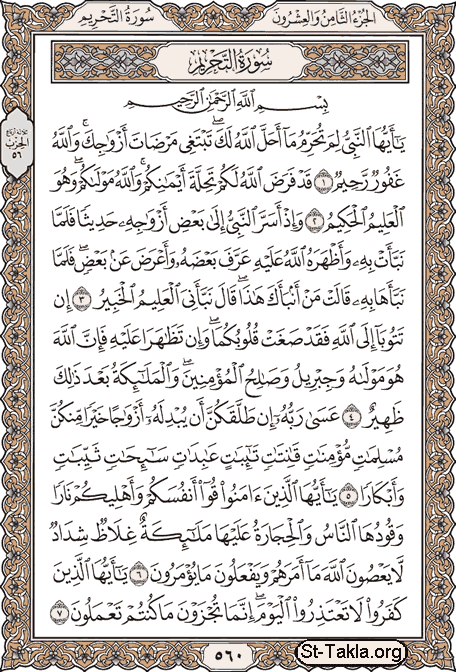 الجزء الثامن والعشرون
سورة التحريم
سُورَةُ التَّحْرِيمِ
بِسْمِ اللَّهِ الرَّحْمَٰنِ الرَّحِيمِ
يَٰٓأَيُّهَا ٱلنَّبِىُّ لِمَ تُحَرِّمُ مَآ أَحَلَّ ٱللَّهُ لَكَ ۖ تَبْتَغِى مَرْضَاتَ أَزْوَٰجِكَ ۚ وَٱللَّهُ
غَفُورٌ رَّحِيمٌ ١ قَدْ فَرَضَ ٱللَّهُ لَكُمْ تَحِلَّةَ أَيْمَٰنِكُمْ ۚ وَٱللَّهُ مَوْلَىٰكُمْ ۖ وَهُوَ
ٱلْعَلِيمُ ٱلْحَكِيمُ ٢ وَإِذْ أَسَرَّ ٱلنَّبِىُّ إِلَىٰ بَعْضِ أَزْوَٰجِهِۦ حَدِيثًا فَلَمَّا
نَبَّأَتْ بِهِۦ وَأَظْهَرَهُ ٱللَّهُ عَلَيْهِ عَرَّفَ بَعْضَهُۥ وَأَعْرَضَ عَنۢ بَعْضٍ ۖ فَلَمَّا
نَبَّأَهَا بِهِۦ قَالَتْ مَنْ أَنۢبَأَكَ هَٰذَا ۖ قَالَ نَبَّأَنِىَ ٱلْعَلِيمُ ٱلْخَبِيرُ ٣ إِن
تَتُوبَآ إِلَى ٱللَّهِ فَقَدْ صَغَتْ قُلُوبُكُمَا ۖ وَإِن تَظَٰهَرَا عَلَيْهِ فَإِنَّ ٱللَّهَ
هُوَ مَوْلَىٰهُ وَجِبْرِيلُ وَصَٰلِحُ ٱلْمُؤْمِنِينَ ۖ وَٱلْمَلَٰٓئِكَةُ بَعْدَ ذَٰلِكَ
ظَهِيرٌ ٤ عَسَىٰ رَبُّهُۥٓ إِن طَلَّقَكُنَّ أَن يُبْدِلَهُۥٓ أَزْوَٰجًا خَيْرًا مِّنكُنَّ
مُسْلِمَٰتٍ مُّؤْمِنَٰتٍ قَٰنِتَٰتٍ تَٰٓئِبَٰتٍ عَٰبِدَٰتٍ سَٰٓئِحَٰتٍ ثَيِّبَٰتٍ
وَأَبْكَارًا ٥ يَٰٓأَيُّهَا ٱلَّذِينَ ءَامَنُوا۟ قُوٓا۟ أَنفُسَكُمْ وَأَهْلِيكُمْ نَارًا
وَقُودُهَا ٱلنَّاسُ وَٱلْحِجَارَةُ عَلَيْهَا مَلَٰٓئِكَةٌ غِلَاظٌ شِدَادٌ
لَّا يَعْصُونَ ٱللَّهَ مَآ أَمَرَهُمْ وَيَفْعَلُونَ مَا يُؤْمَرُونَ ٦ يَٰٓأَيُّهَا ٱلَّذِينَ
كَفَرُوا۟ لَا تَعْتَذِرُوا۟ ٱلْيَوْمَ ۖ إِنَّمَا تُجْزَوْنَ مَا كُنتُمْ تَعْمَلُونَ ٧
الحزب
٥٦
٥٦٠
St-Takla.org